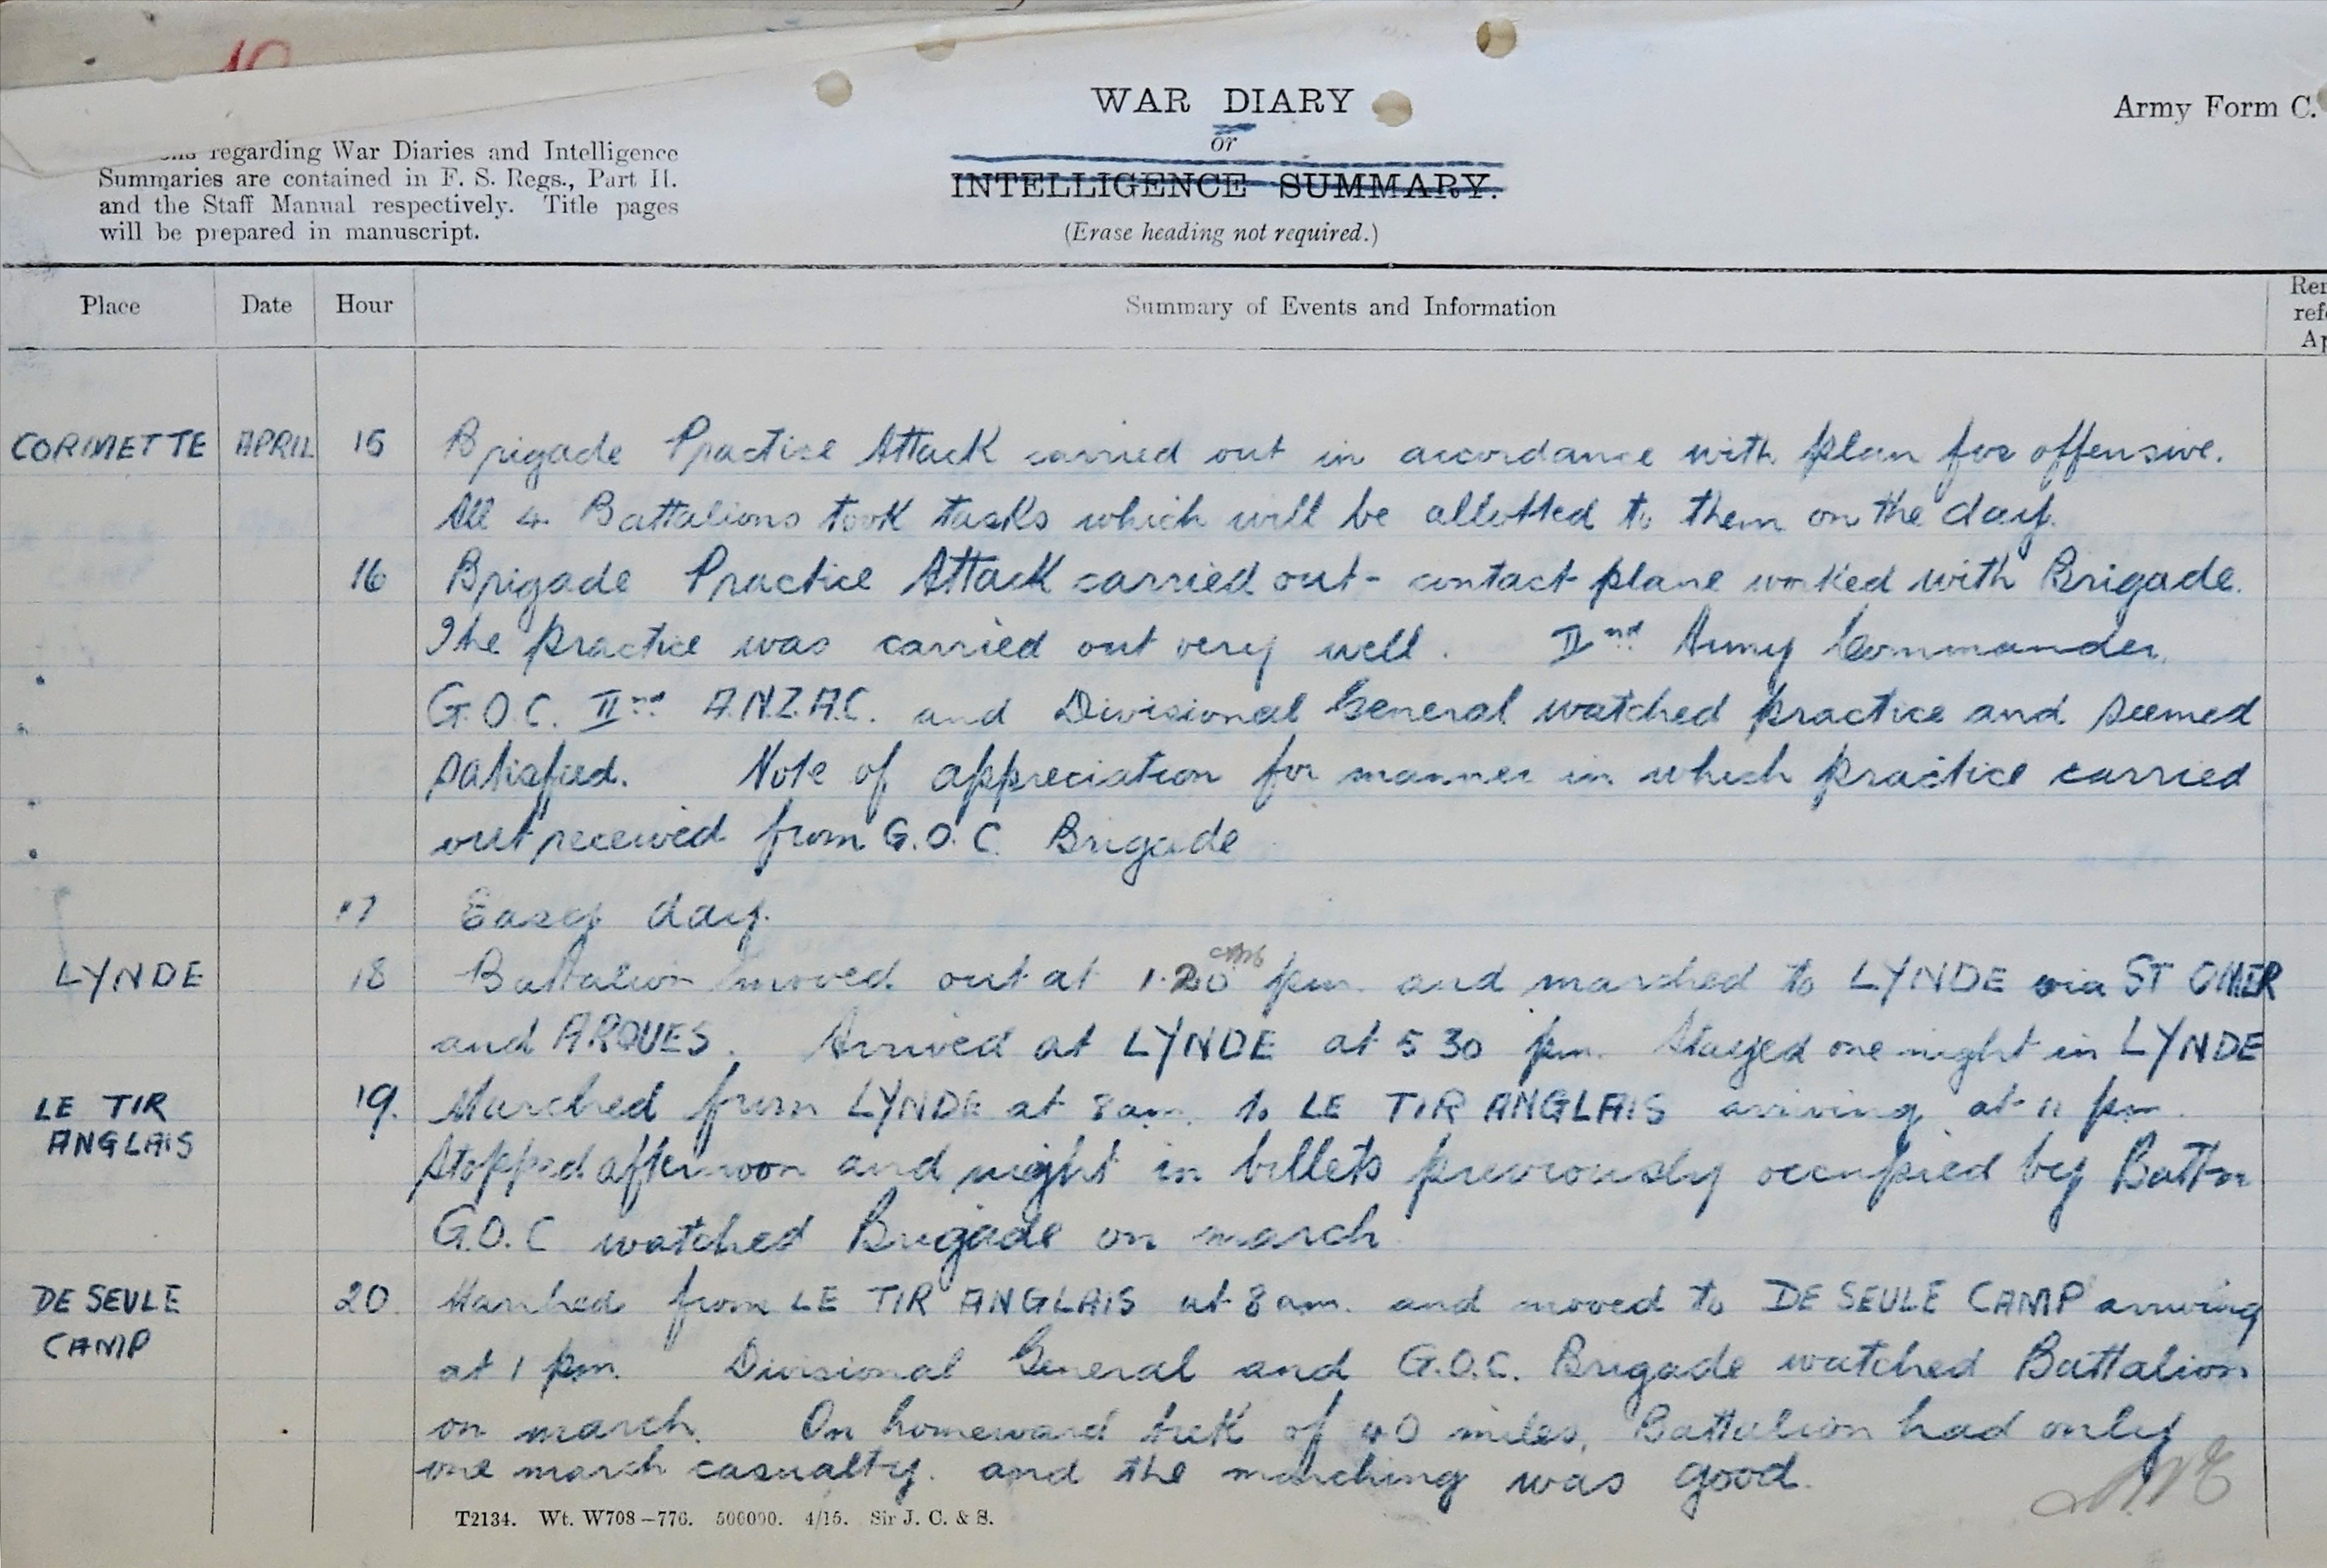 10
WAR DIARY
Army Form C.
or
regarding War Diaries and Intelligence
Summaries are contained in F. S. Regs., Part II.
and the Staff Manual respectively. Title pages
will be prepared in manuscript.
INTELLIGENCE SUMMARY.
(Erase heading not required.)
Place Date Hour Summary of Events and Information
CORMETTE APRIL 15 Brigade Practise Attack carried out in accordance with plan for offensive.
All 4 Battalions took tasks which will be allotted to them on the day.
16 Brigade Practice Attack carried out - contact plane worked with Brigade.
The practice was carried out very well. IInd Army Commander,
G.O.C. IInd A.N.Z.A.C. and Divisional General watched practice and seemed
satisfied. Note of appreciation for manner in which practice carried
out received from G.O.C. Brigade
17 Easy day.
LYNDE 18 Battalion moved out at 1.20 pm. and marched to LYNDE via ST OMER
and ARQUES. Arrived at LYNDE at 5 30 pm. Stayed one night in LYNDE
LE TIR ANGLAIS 19. Marched from LYNDE at 8am. to LE TIR ANGLAIS arriving at 11 pm.
Stopped afternoon and night in billets previously occupied by Battn
G.O.C watched Brigade on march
DE SEULE CAMP 20. Marched from LE TIR ANGLAIS at 8 am. and moved to DE SEULE CAMP arriving
at 1 pm. Divisional General and G.O.C. Brigade watched Battalion
on march. On homeward trek of 40 miles, Battalion had only
one march casualty. and the marching was good.
T2134. Wt. W708—776. 500000. 4/15. Sir J. C. & S.